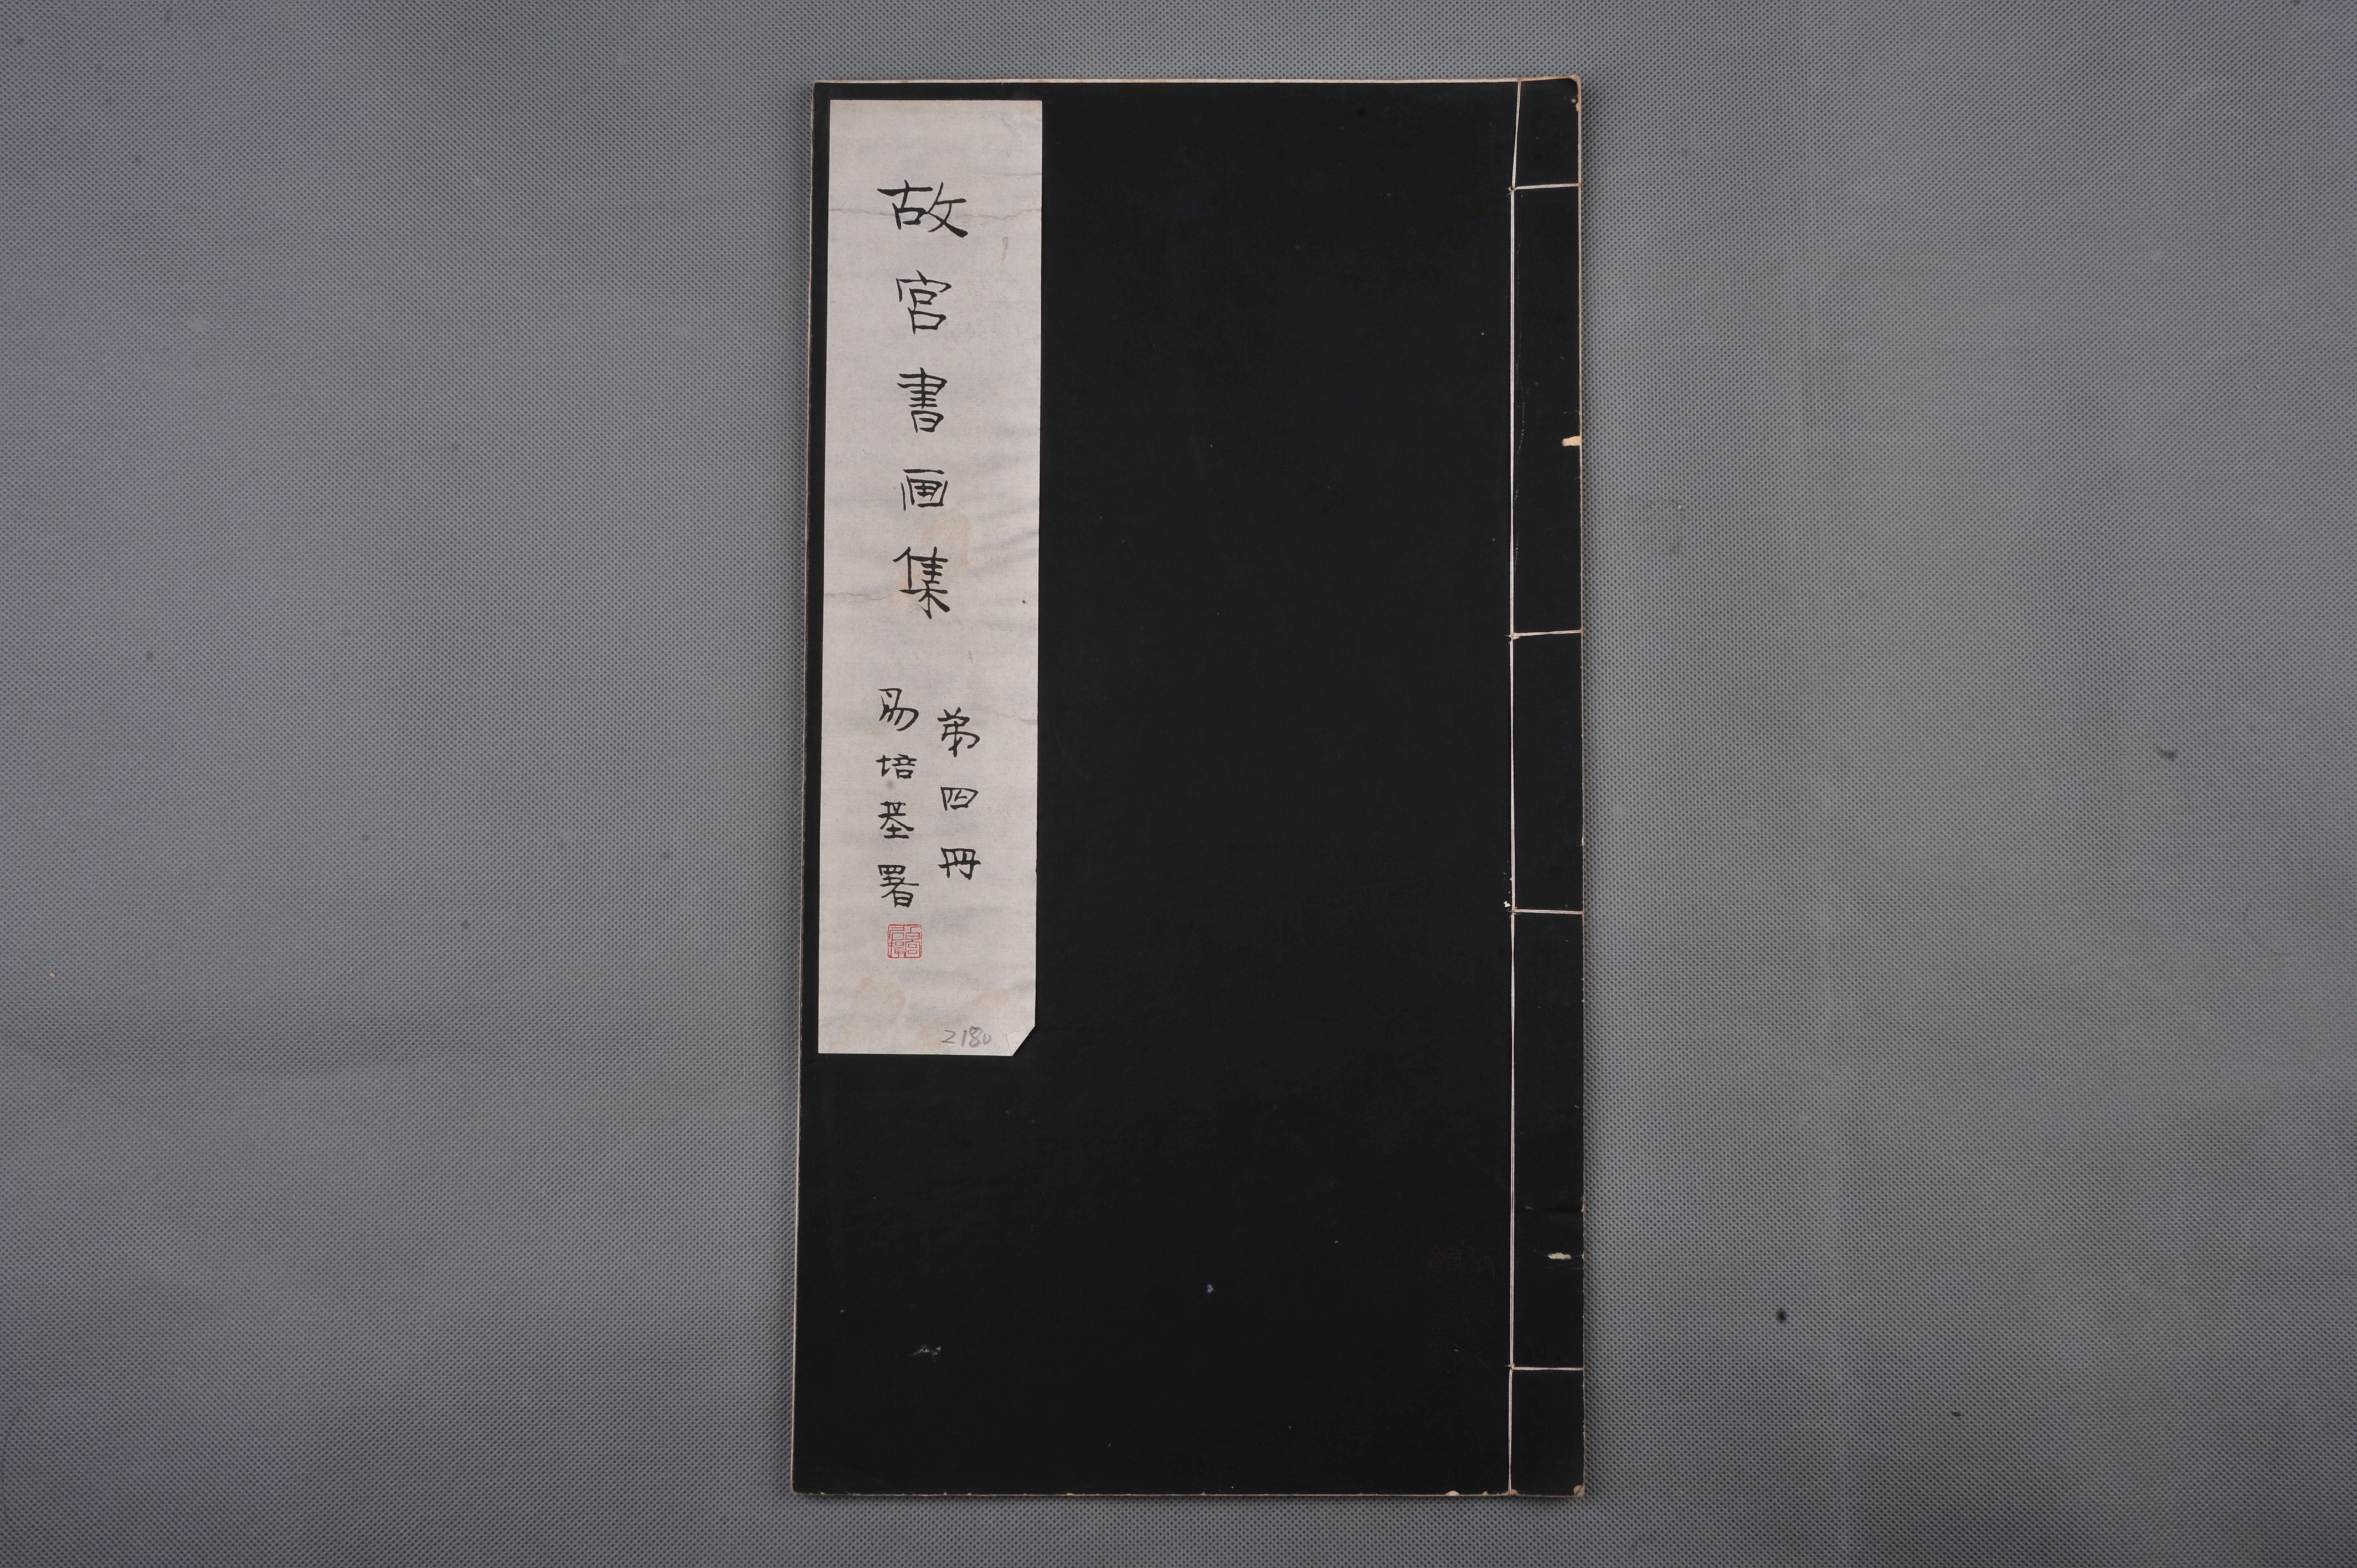 故宮書画集
弟四冊
易培基署
2180